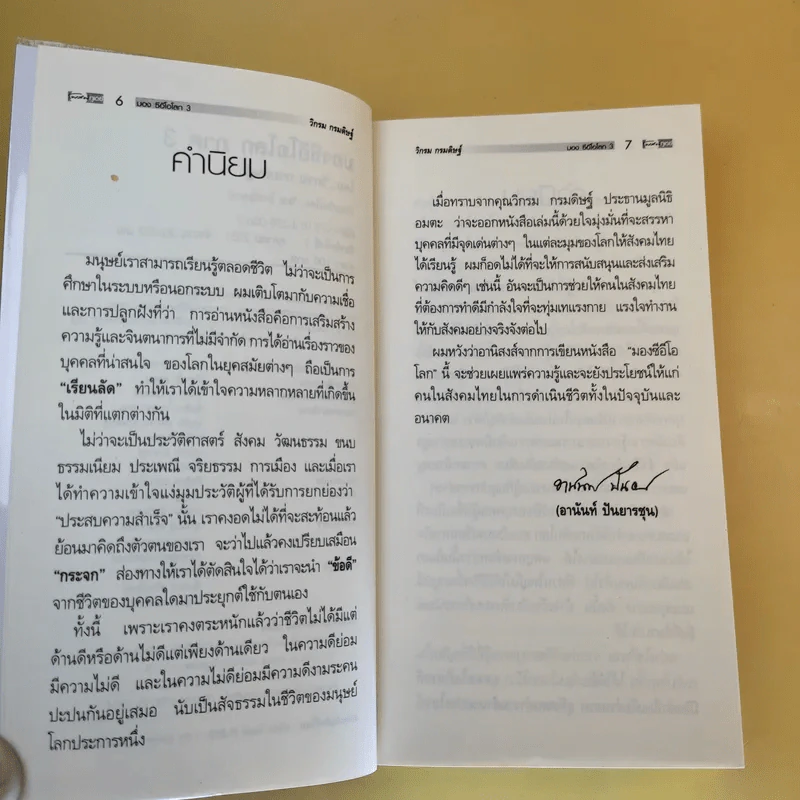 6 มอง ซีอีโอโลก 3
วิกรม กรมดิษฐ์
คำนิยม
มนุษย์เราสามารถเรียนรู้ตลอดชีวิต ไม่ว่าจะเป็นการ
ศึกษาในระบบหรือนอกระบบ ผมเติบโตมากับความเชื่อ
และการปลูกฝังที่ว่า การอ่านหนังสือคือการเสริมสร้าง
ความรู้และจินตนาการที่ไม่มีจำกัด การได้อ่านเรื่องราวของ
บุคคลที่น่าสนใจ ของโลกในยุคสมัยต่างๆ ถือเป็นการ
“เรียนลัด” ทำให้เราได้เข้าใจความหลากหลายที่เกิดขึ้น
ในมิติที่แตกต่างกัน
ไม่ว่าจะเป็นประวัติศาสตร์ สังคม วัฒนธรรม ขนบ
ธรรมเนียม ประเพณี จริยธรรม การเมือง และเมื่อเรา
ได้ทำความเข้าใจแง่มุมประวัติผู้ที่ได้รับการยกย่องว่า
“ประสบความสำเร็จ” นั้น เราคงอดไม่ได้ที่จะสะท้อนแล้ว
ย้อนมาคิดถึงตัวตนของเรา จะว่าไปแล้วคงเปรียบเสมือน
“กระจก” ส่องทางให้เราได้ตัดสินใจได้ว่าเราจะนำ “ข้อดี”
จากชีวิตของบุคคลใดมาประยุกต์ใช้กับตนเอง
ทั้งนี้ เพราะเราคงตระหนักแล้วว่าชีวิตไม่ได้มีแต่
ด้านดีหรือด้านไม่ดีแต่เพียงด้านเดียว ในความดีย่อม
มีความไม่ดี และในความไม่ดีย่อมมีความดีงามระคน
ปะปนกันอยู่เสมอ นับเป็นสัจธรรมในชีวิตของมนุษย์
โลกประการหนึ่ง
วิกรม กรมดิษฐ์ มอง ซีอีโอโลก 3 7
เมื่อทราบจากคุณวิกรม กรมดิษฐ์ ประธานมูลนิธิ
อมตะ ว่าจะออกหนังสือเล่มนี้ด้วยใจมุ่งมั่นที่จะสรรหา
บุคคลที่มีจุดเด่นต่างๆ ในแต่ละมุมของโลกให้สังคมไทย
ได้เรียนรู้ ผมก็อดไม่ได้ที่จะให้การสนับสนุนและส่งเสริม
ความคิดดีๆ เช่นนี้ อันจะเป็นการช่วยให้คนในสังคมไทย
ที่ต้องการทำดีมีกำลังใจที่จะทุ่มเทแรงกาย แรงใจทำงาน
ให้กับสังคมอย่างจริงจังต่อไป
ผมหวังว่าอานิสงส์จากการเขียนหนังสือ “มองซีอีโอ
โลก” นี้ จะช่วยเผยแพร่ความรู้และจะยังประโยชน์ให้แก่
คนในสังคมไทยในการดำเนินชีวิตทั้งในปัจจุบันและ
อนาคต
(อานันท์ ปันยารชุน)